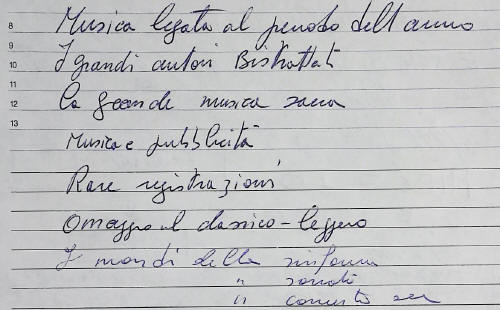 8 Musica legata al periodo dell'anno
9
10 I grandi autori Bistrattati
11 La grande musica sacra
12
13
Musica e pubblicità
Rare registrazioni
Omaggio al classico-leggero
I mondi della sinfonia
" sonata
" concerto